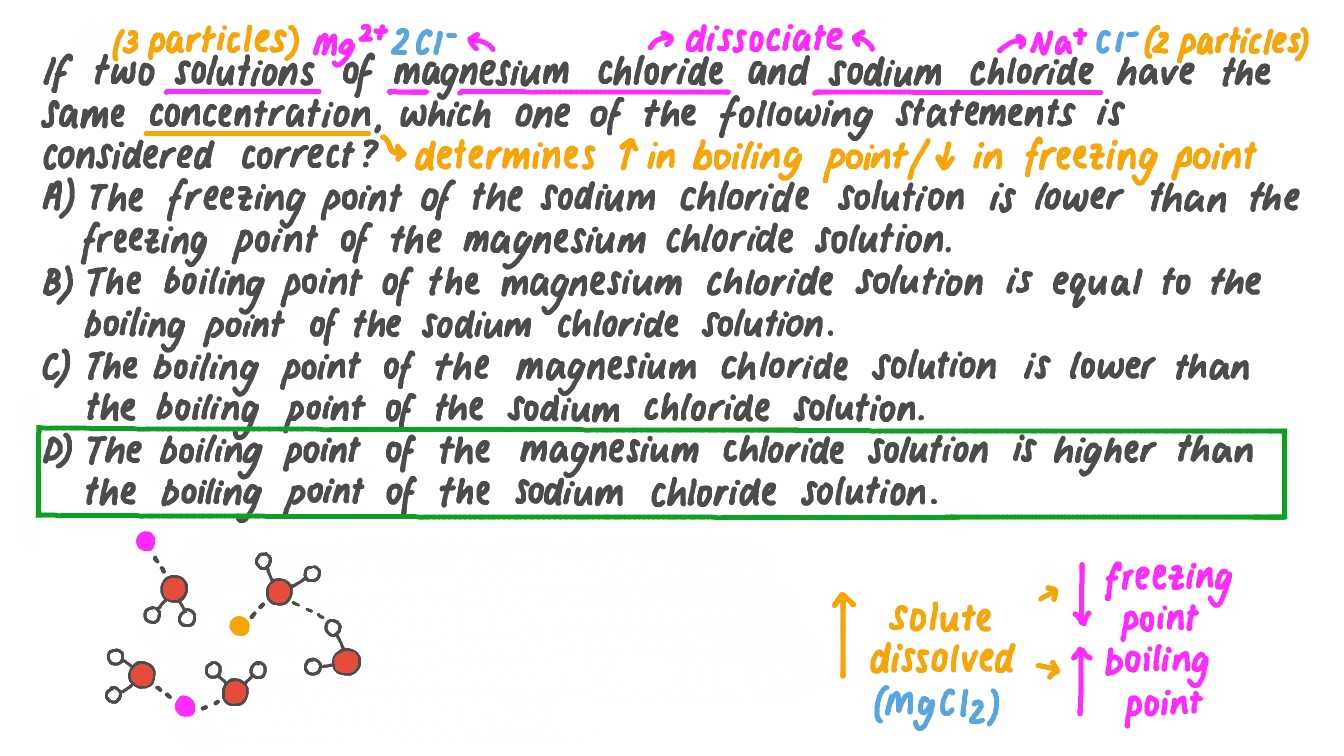 (3 particles) Mg²⁺ 2Cl⁻ dissociate Na⁺ Cl⁻ (2 particles)
If two solutions of magnesium chloride and sodium chloride have the
same concentration, which one of the following statements is
considered correct? determines ↑ in boiling point/↓ in freezing point
A) The freezing point of the sodium chloride solution is lower than the
freezing point of the magnesium chloride solution.
B) The boiling point of the magnesium chloride solution is equal to the
boiling point of the sodium chloride solution.
C) The boiling point of the magnesium chloride solution is lower than
the boiling point of the sodium chloride solution.
D) The boiling point of the magnesium chloride solution is higher than
the boiling point of the sodium chloride solution.
solute
dissolved
(MgCl₂)
freezing
point
boiling
point